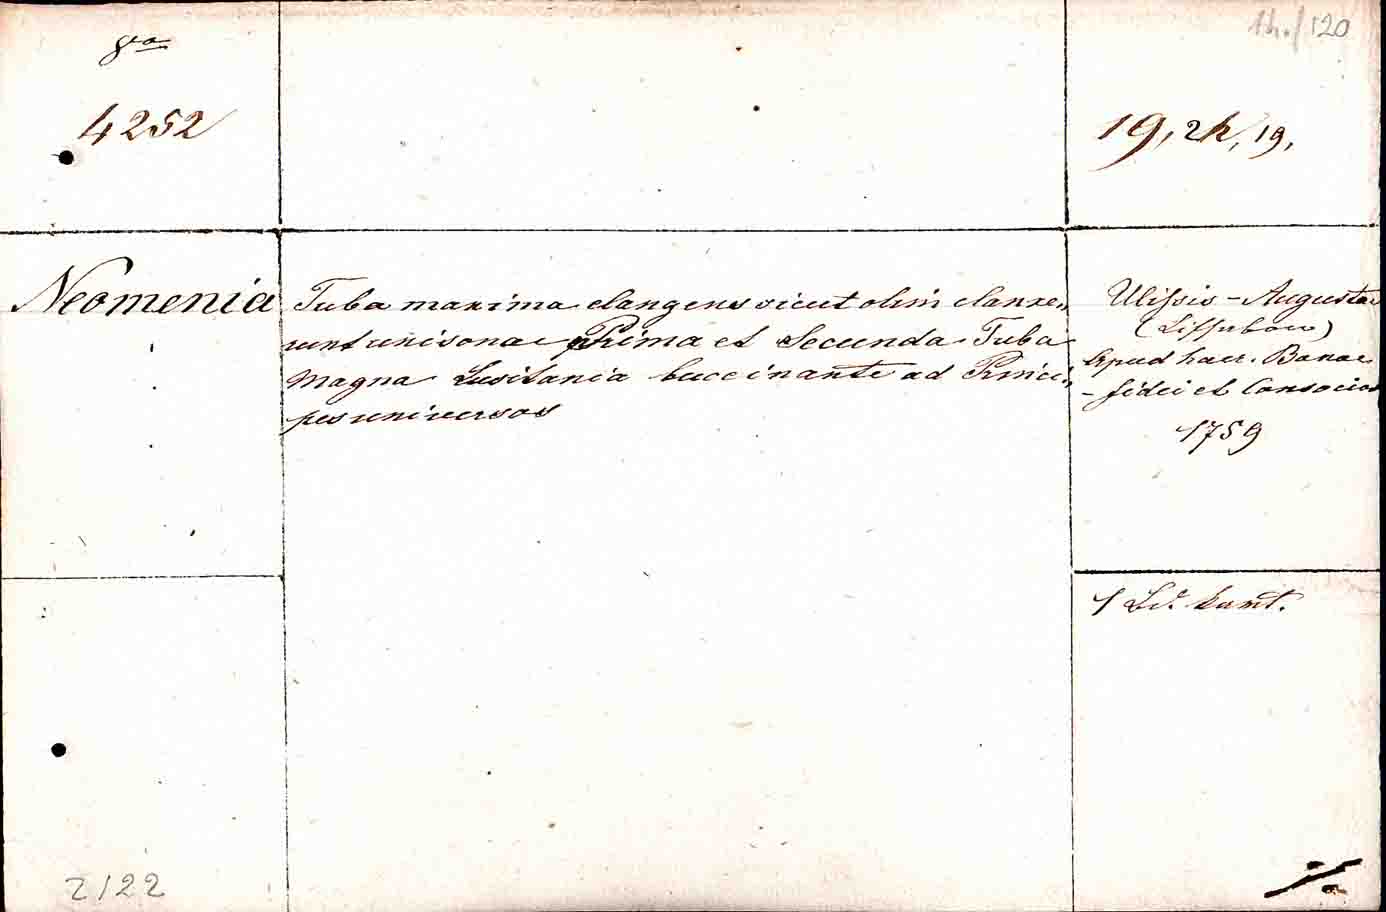 8vo
120
4252
19, 2h, 19,
Neomenia
Tuba maxima clangens sicut olim clanxe,,
runt unisonae Prima et Secunda Tuba
Magna Lusitania buccinante ad Princi,,
pes universos
Ulissis - Augustae
(Lissabon)
Apud haer. Bonae
- fidei et Consocios
1759
1 Bd.
2122